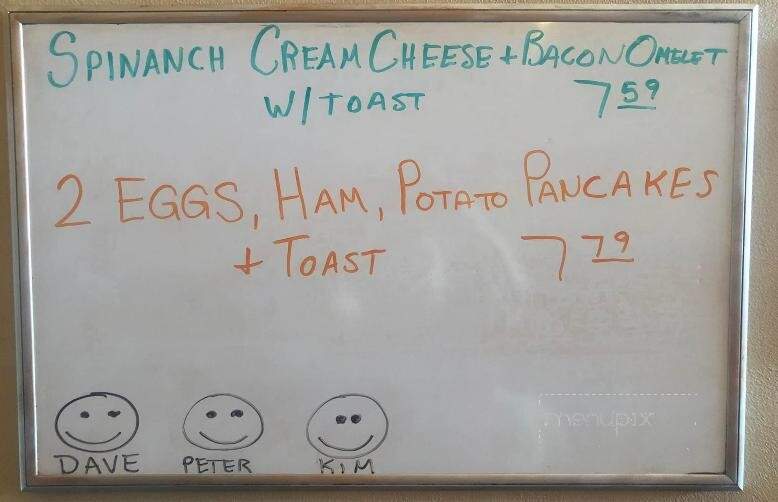 SPINANCH CREAM CHEESE + BACON OMELET
W/ TOAST 7 59
2 EGGS, HAM, POTATO PANCAKES
+ TOAST 7 79
DAVE PETER KIM
menupix